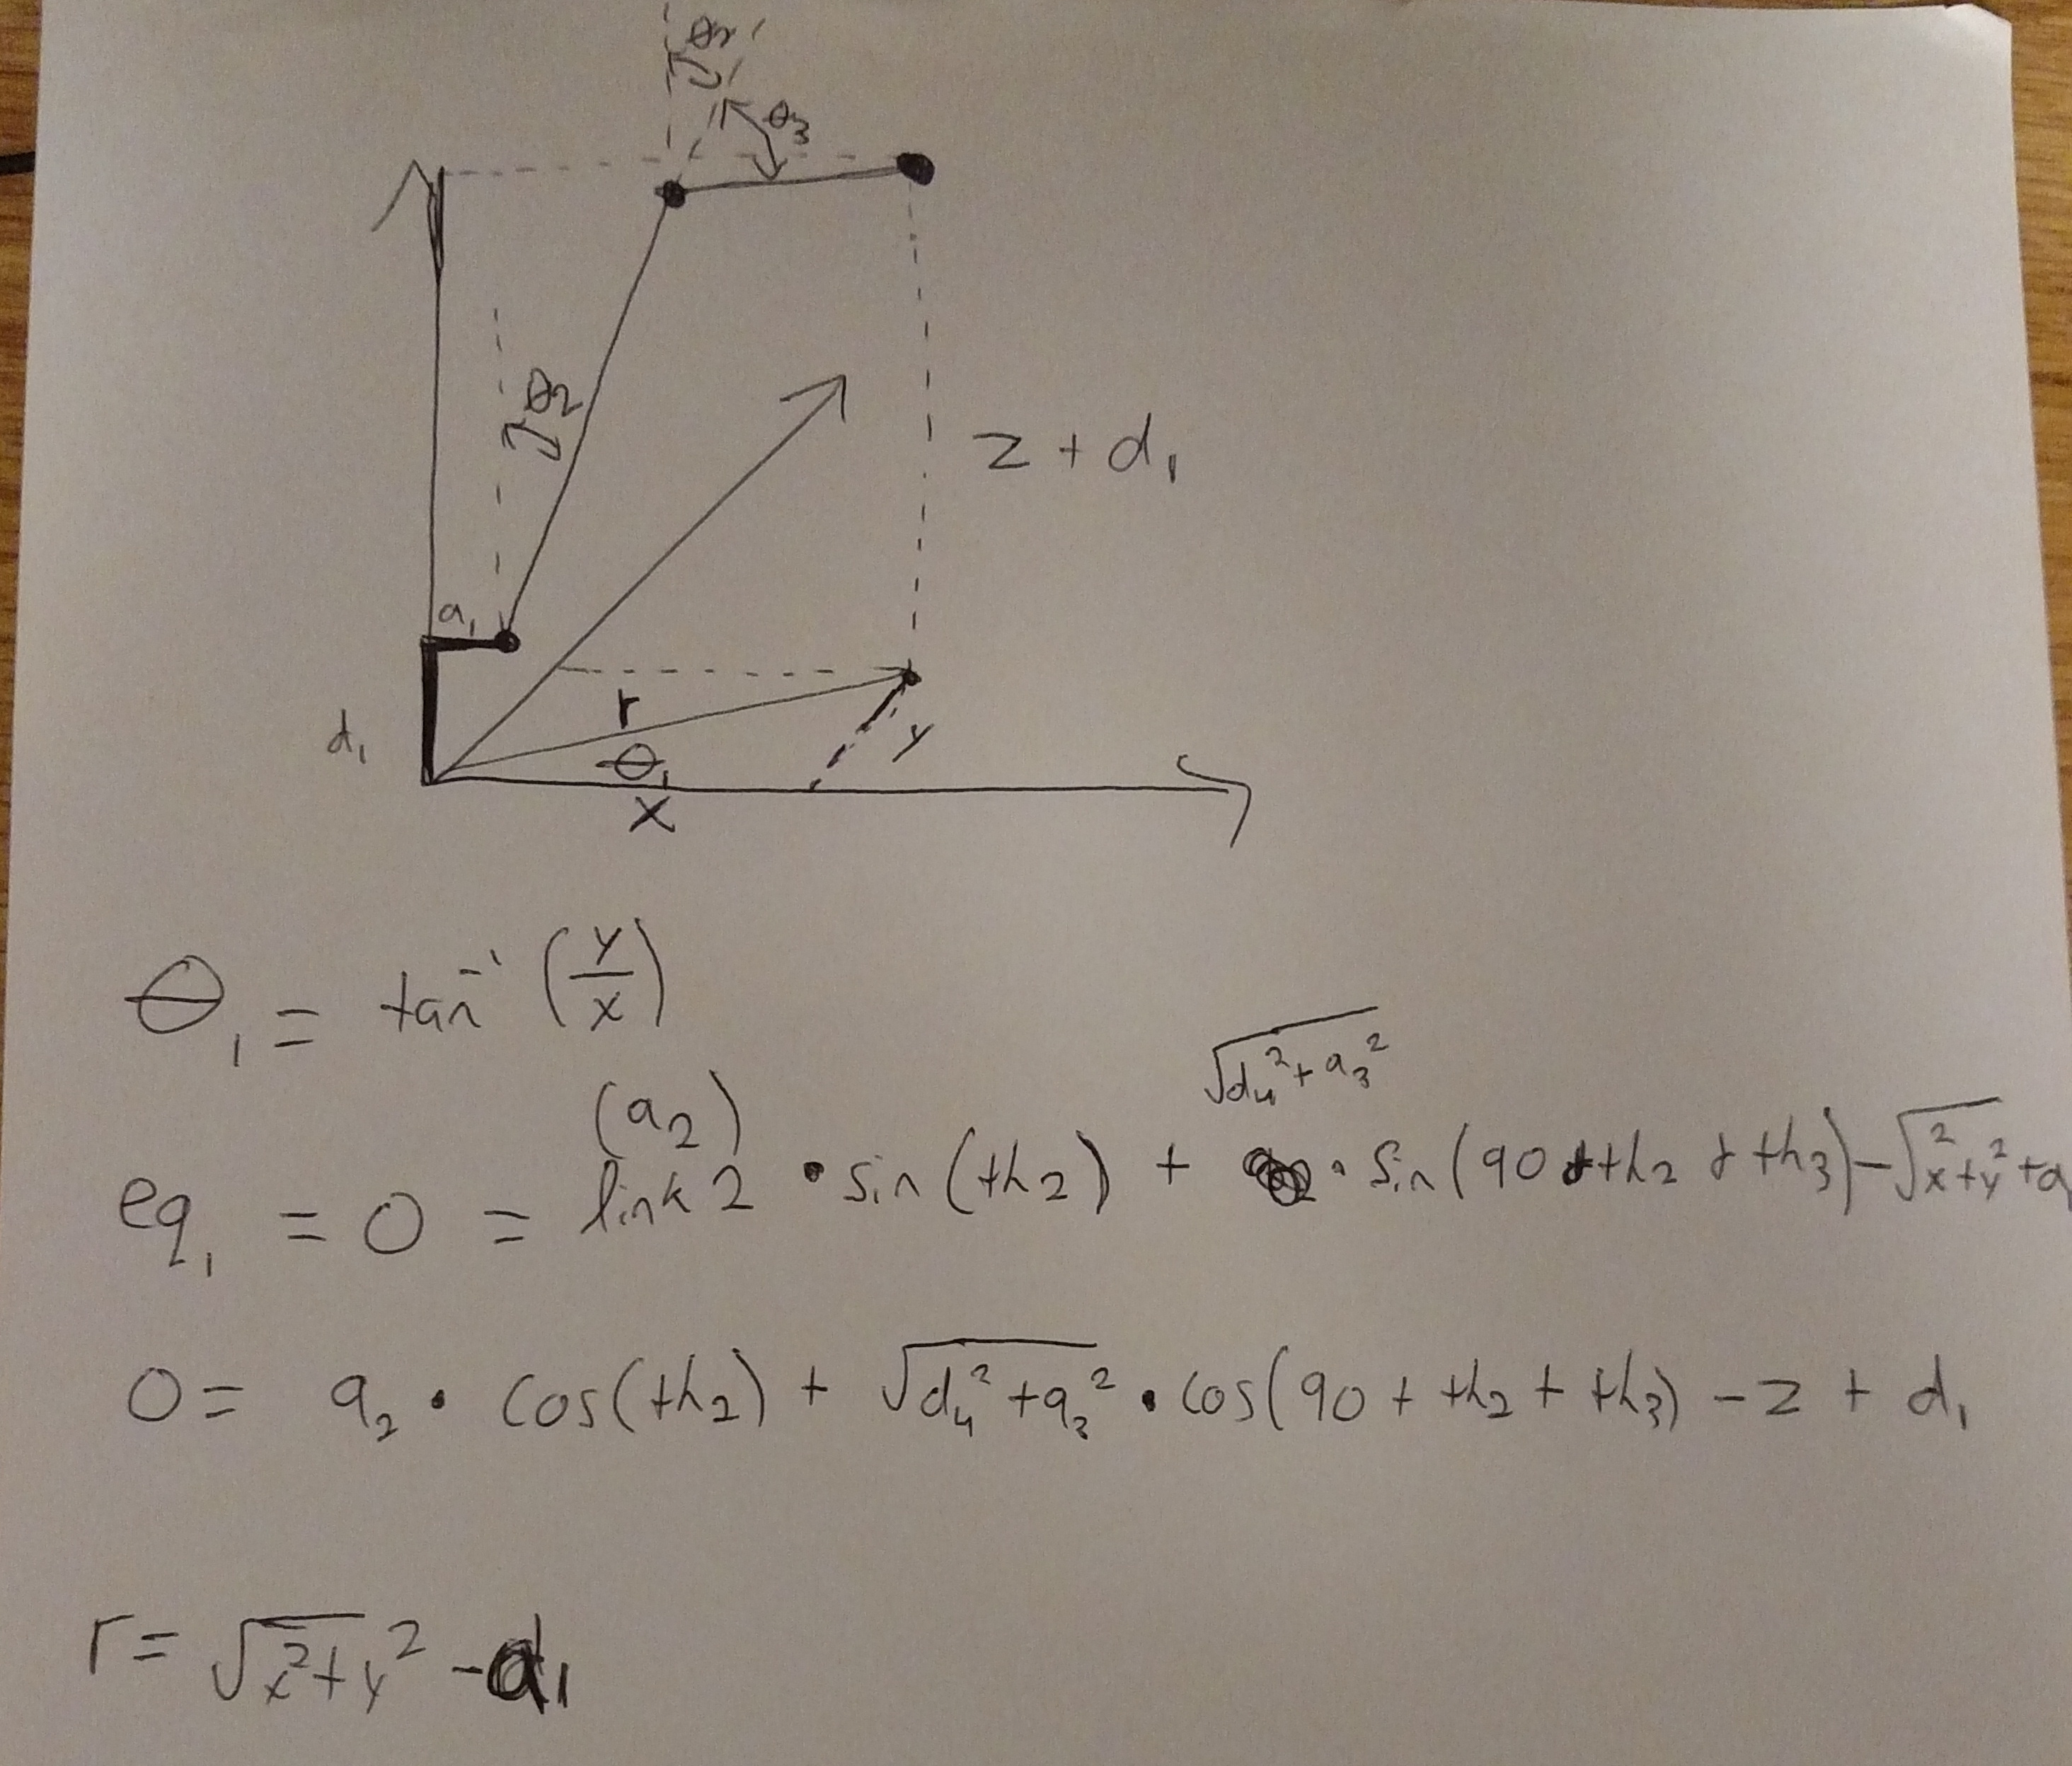 θ₂
θ₃
θ₂
z + d₁
a₁
r
d₁
θ₁
y
x
θ₁ = tan⁻¹ (y/x)
√d₄² + a₃²
(a₂)
eq₁ = 0 = link 2 • sin(th₂) + • sin(90 + th₂ + th₃) - √x² + y² + a
0 = a₂ • cos(th₂) + √d₄² + a₃² • cos(90 + th₂ + th₃) - z + d₁
r = √x² + y² - a₁